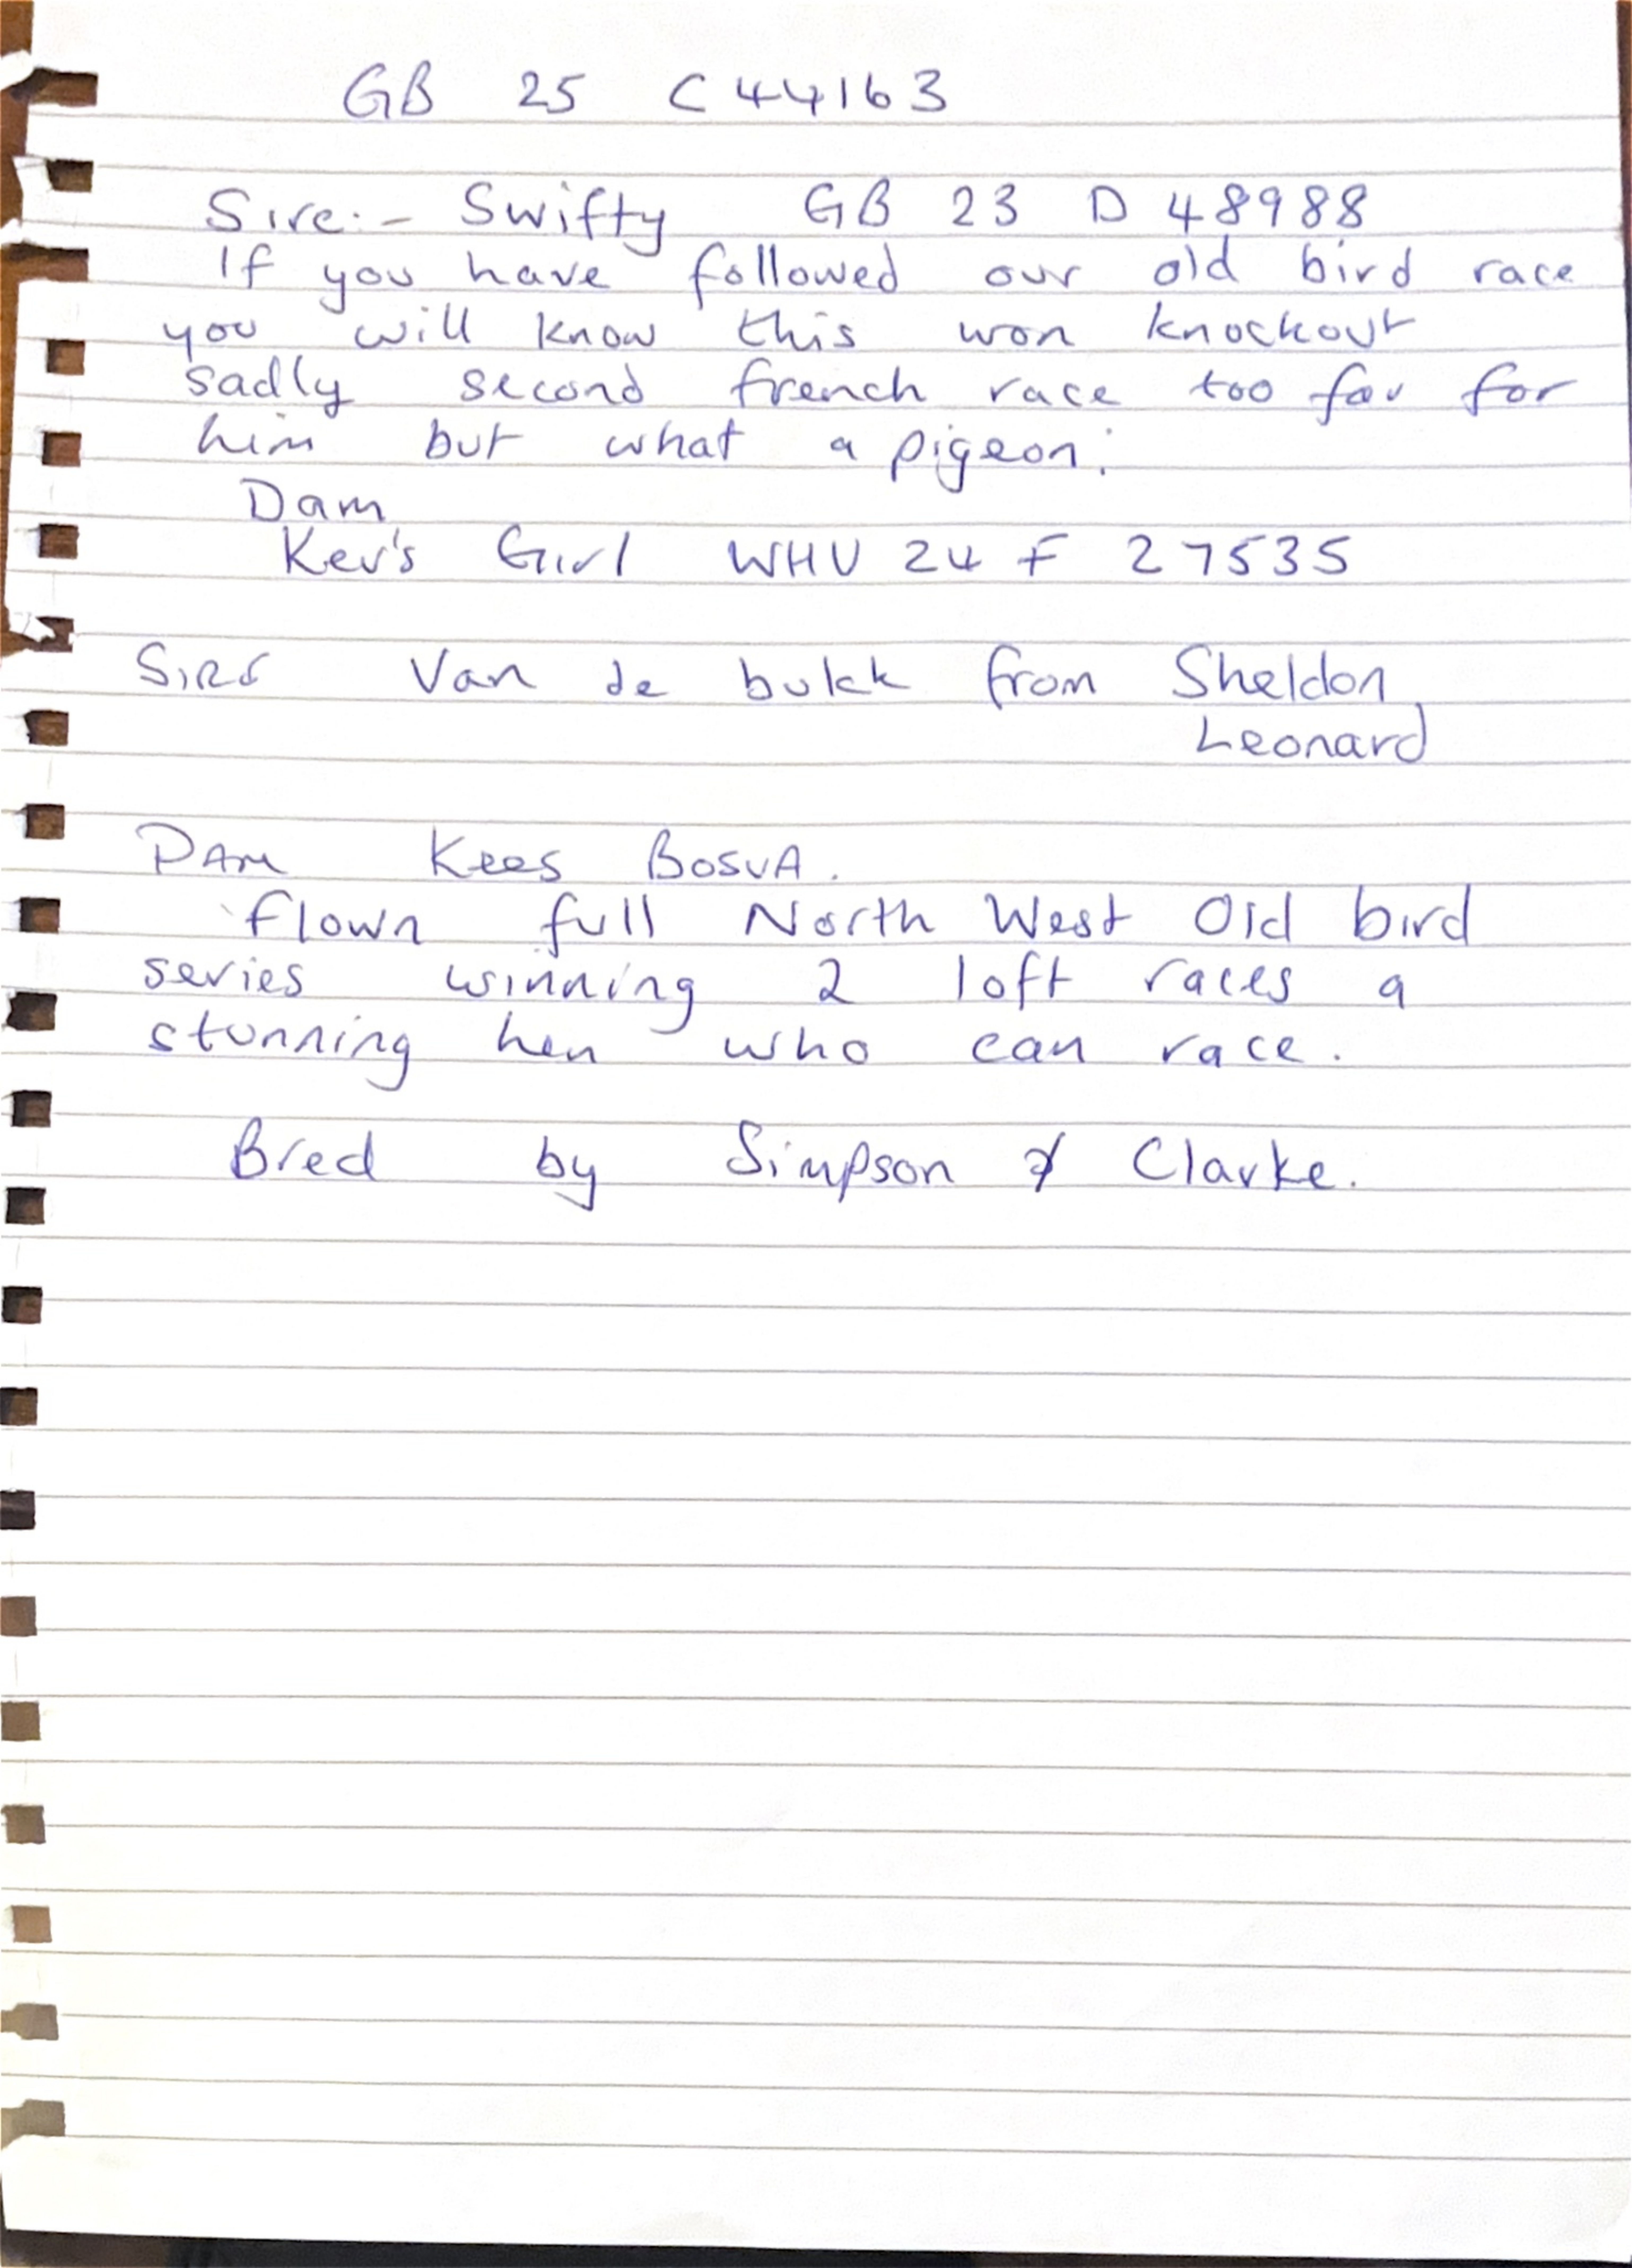 GB 25 C 44163
Sire:- Swifty GB 23 D 48988
If you have followed our old bird race
you will know this won knockout
sadly second french race too far for
him but what a pigeon.
Dam
Kev's Girl WHU 24 F 27535
SIRE Van de bulk from Sheldon
Leonard
DAM Kees BOSUA.
flown full North West Old bird
series winning 2 loft races a
stunning hen who can race.
Bred by Simpson & Clarke.